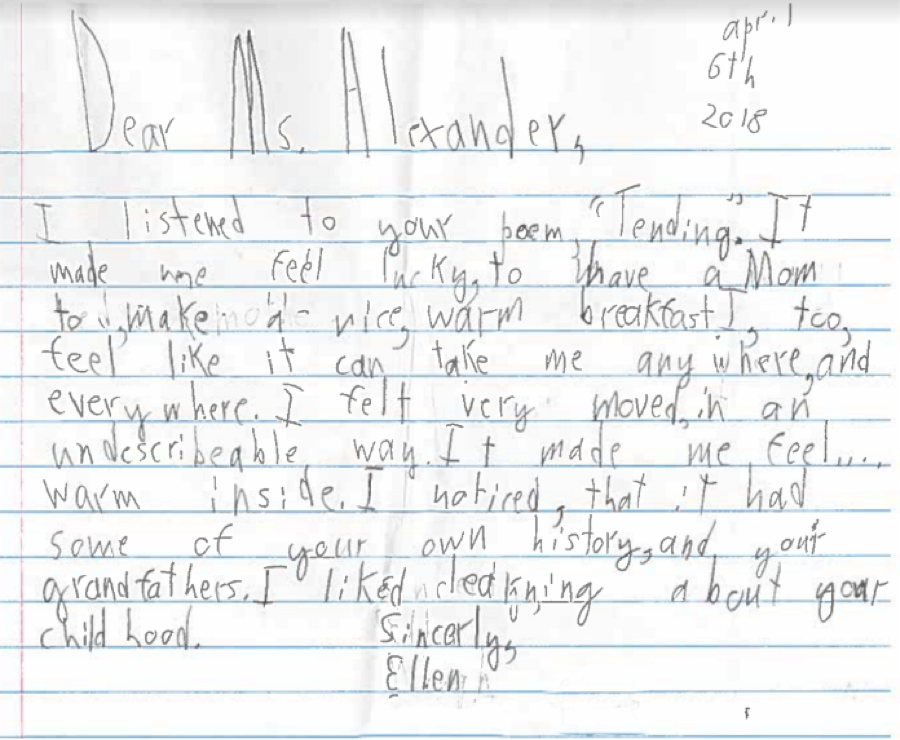 apr. 1
6th
2018
Dear Ms. Alexander,
I listened to your poem, "Tending." It
made me feel lucky, to have a Mom
to make a nice, warm breakfast I, too,
feel like it can take me any where, and
every where. I felt very moved, in an
undescribeable way. It made me feel....
warm inside. I noticed, that it had
some of your own history, and your
grandfathers. I liked about your
child hood.
Sincerly,
Ellen